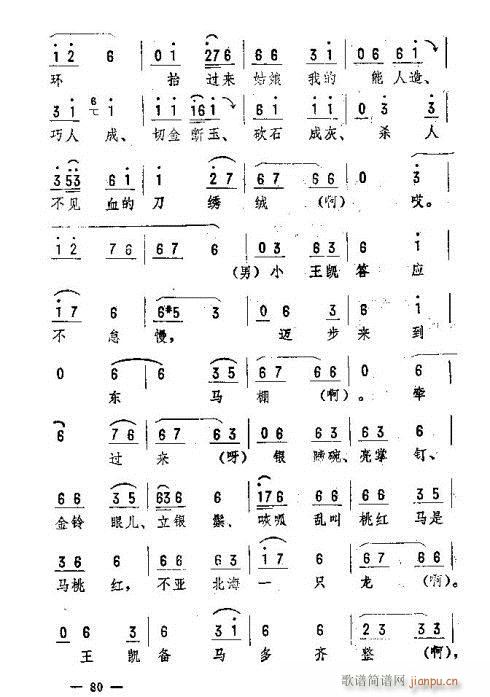 i 2 6 0 i 2 7 6 6 6 3 i 0 6 6 i
环 抬 过来 姑娘 我的 能 人造、
3 i 6 i i i 6 i 0 3 3 i 0 3 3
巧人 成、 切金 断玉、 砍石 成灰、 杀 人
3 5 3 6 i i 2 7 6 7 6 7 0 3
不见 血的 刀 绣 绒 (啊) 哎。
i 2 7 6 6 7 6 0 3 6 3 6 i
(男)小 王凯 答 应
i 7 6 6 #5 3 0 6 3 6 i
不 怠 慢, 迈 步 来 到
0 6 6 3 5 6 7 6 7 0 6
东 马 棚 (啊)。 牵
6 7 6 6 7 6 6 3 0 6 6 6 3
过 来 (呀) 银 碗、亮掌 钉、
6 6 3 5 6 3 6 6 i 7 6 6 6 6 3 5
金铃 眼儿、 立银 鬃、 咴呱 乱叫 桃红 马是
6 3 3 6 6 6 3 i 7 6 6 7 6 6
马桃 红, 不亚 北海 一 只 龙 (啊)。
0 6 6 3 6 3 i 6 3 3 6 3
王 凯 备 马 多 齐 整 (啊),
— 80 —
歌谱简谱网
jianpu.cn